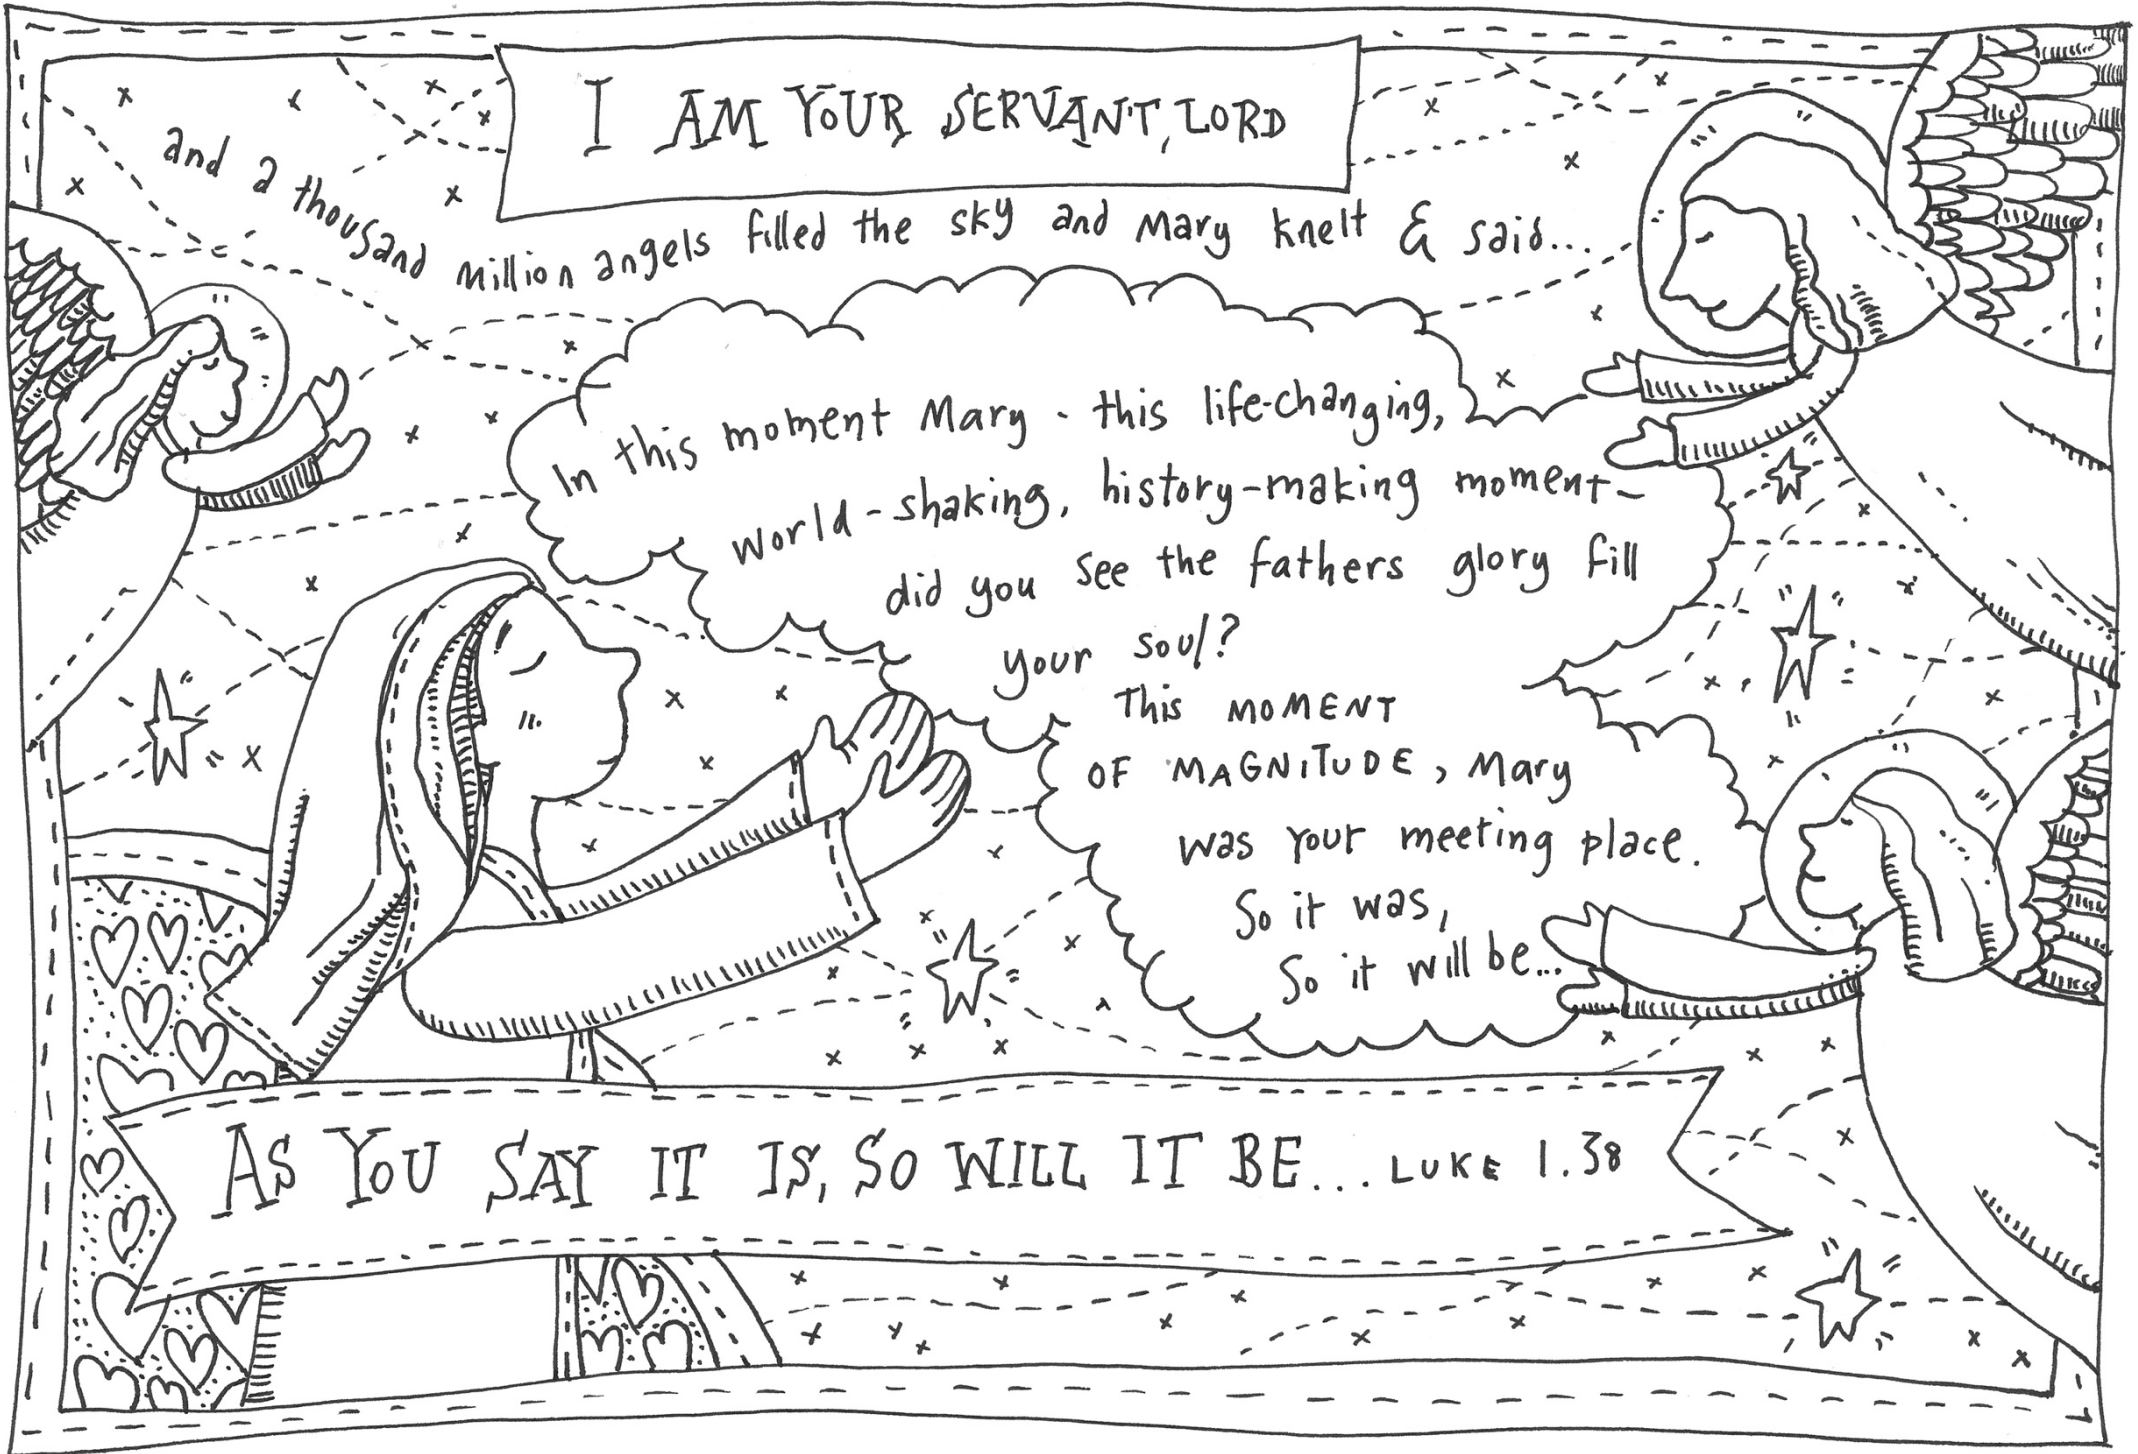 I AM YOUR SERVANT, LORD
and a thousand million angels filled the sky and Mary knelt & said...
In this moment Mary - this life-changing,
world-shaking, history-making moment-
did you see the fathers glory fill
your soul?
This MOMENT
OF MAGNITUDE, Mary
was your meeting place.
So it was,
So it will be...
AS YOU SAY IT IS, SO WILL IT BE... LUKE 1.38